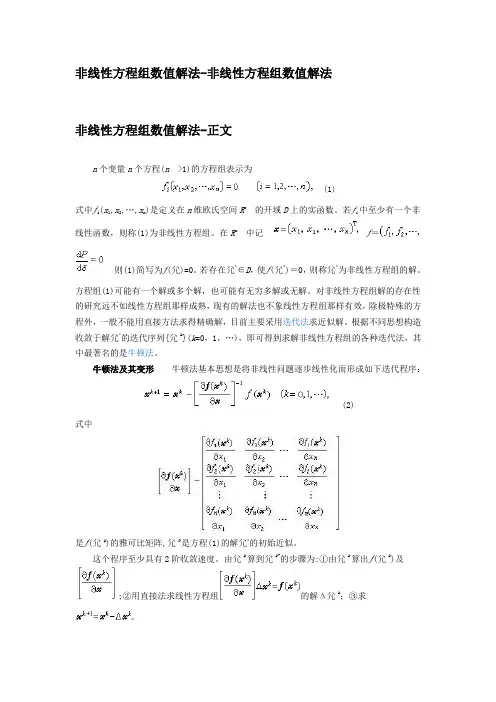 非线性方程组数值解法-非线性方程组数值解法
非线性方程组数值解法-正文
n个变量n个方程(n >1)的方程组表示为
f_i(x₁,x₂,…,x_n)=0 (i=1,2,…,n), (1)
式中f_i(x₁,x₂,…,x_n)是定义在n维欧氏空间Rⁿ的开域D上的实函数。若f_i中至少有一个非
线性函数,则称(1)为非线性方程组。在Rⁿ中记 x=(x₁,x₂,…,x_n)ᵀ f=(f₁,f₂,…,
dP/dδ=0 则(1)简写为f(尣)=0。若存在尣*∈D,使f(尣*)=0,则称尣*为非线性方程组的解。
方程组(1)可能有一个解或多个解,也可能有无穷多解或无解。对非线性方程组解的存在性
的研究远不如线性方程组那样成熟,现有的解法也不象线性方程组那样有效。除极特殊的方
程外,一般不能用直接方法求得精确解,目前主要采用迭代法求近似解。根据不同思想构造
收敛于解尣*的迭代序列{尣ᵏ}(k=0,1,…),即可得到求解非线性方程组的各种迭代法,其
中最著名的是牛顿法。
牛顿法及其变形 牛顿法基本思想是将非线性问题逐步线性化而形成如下迭代程序:
xᵏ⁺¹=xᵏ-[∂f(xᵏ)/∂x]⁻¹f(xᵏ) (k=0,1,…), (2)
式中
[∂f(xᵏ)/∂x]=[∂f₁(xᵏ)/∂x₁ ∂f₁(xᵏ)/∂x₂ … ∂f₁(xᵏ)/∂x_n
∂f₂(xᵏ)/∂x₁ ∂f₂(xᵏ)/∂x₂ … ∂f₂(xᵏ)/∂x_n
⋮ ⋮ ⋮
∂f_n(xᵏ)/∂x₁ ∂f_n(xᵏ)/∂x₂ … ∂f_n(xᵏ)/∂x_n]
是f(尣ᵏ)的雅可比矩阵,尣⁰是方程(1)的解尣*的初始近似。
这个程序至少具有2阶收敛速度。由尣ᵏ算到尣ᵏ⁺¹的步骤为:①由尣ᵏ算出f(尣ᵏ)及
[∂f(xᵏ)/∂x];②用直接法求线性方程组[∂f(xᵏ)/∂x]Δxᵏ=f(xᵏ)的解Δ尣ᵏ;③求
xᵏ⁺¹=xᵏ-Δxᵏ。